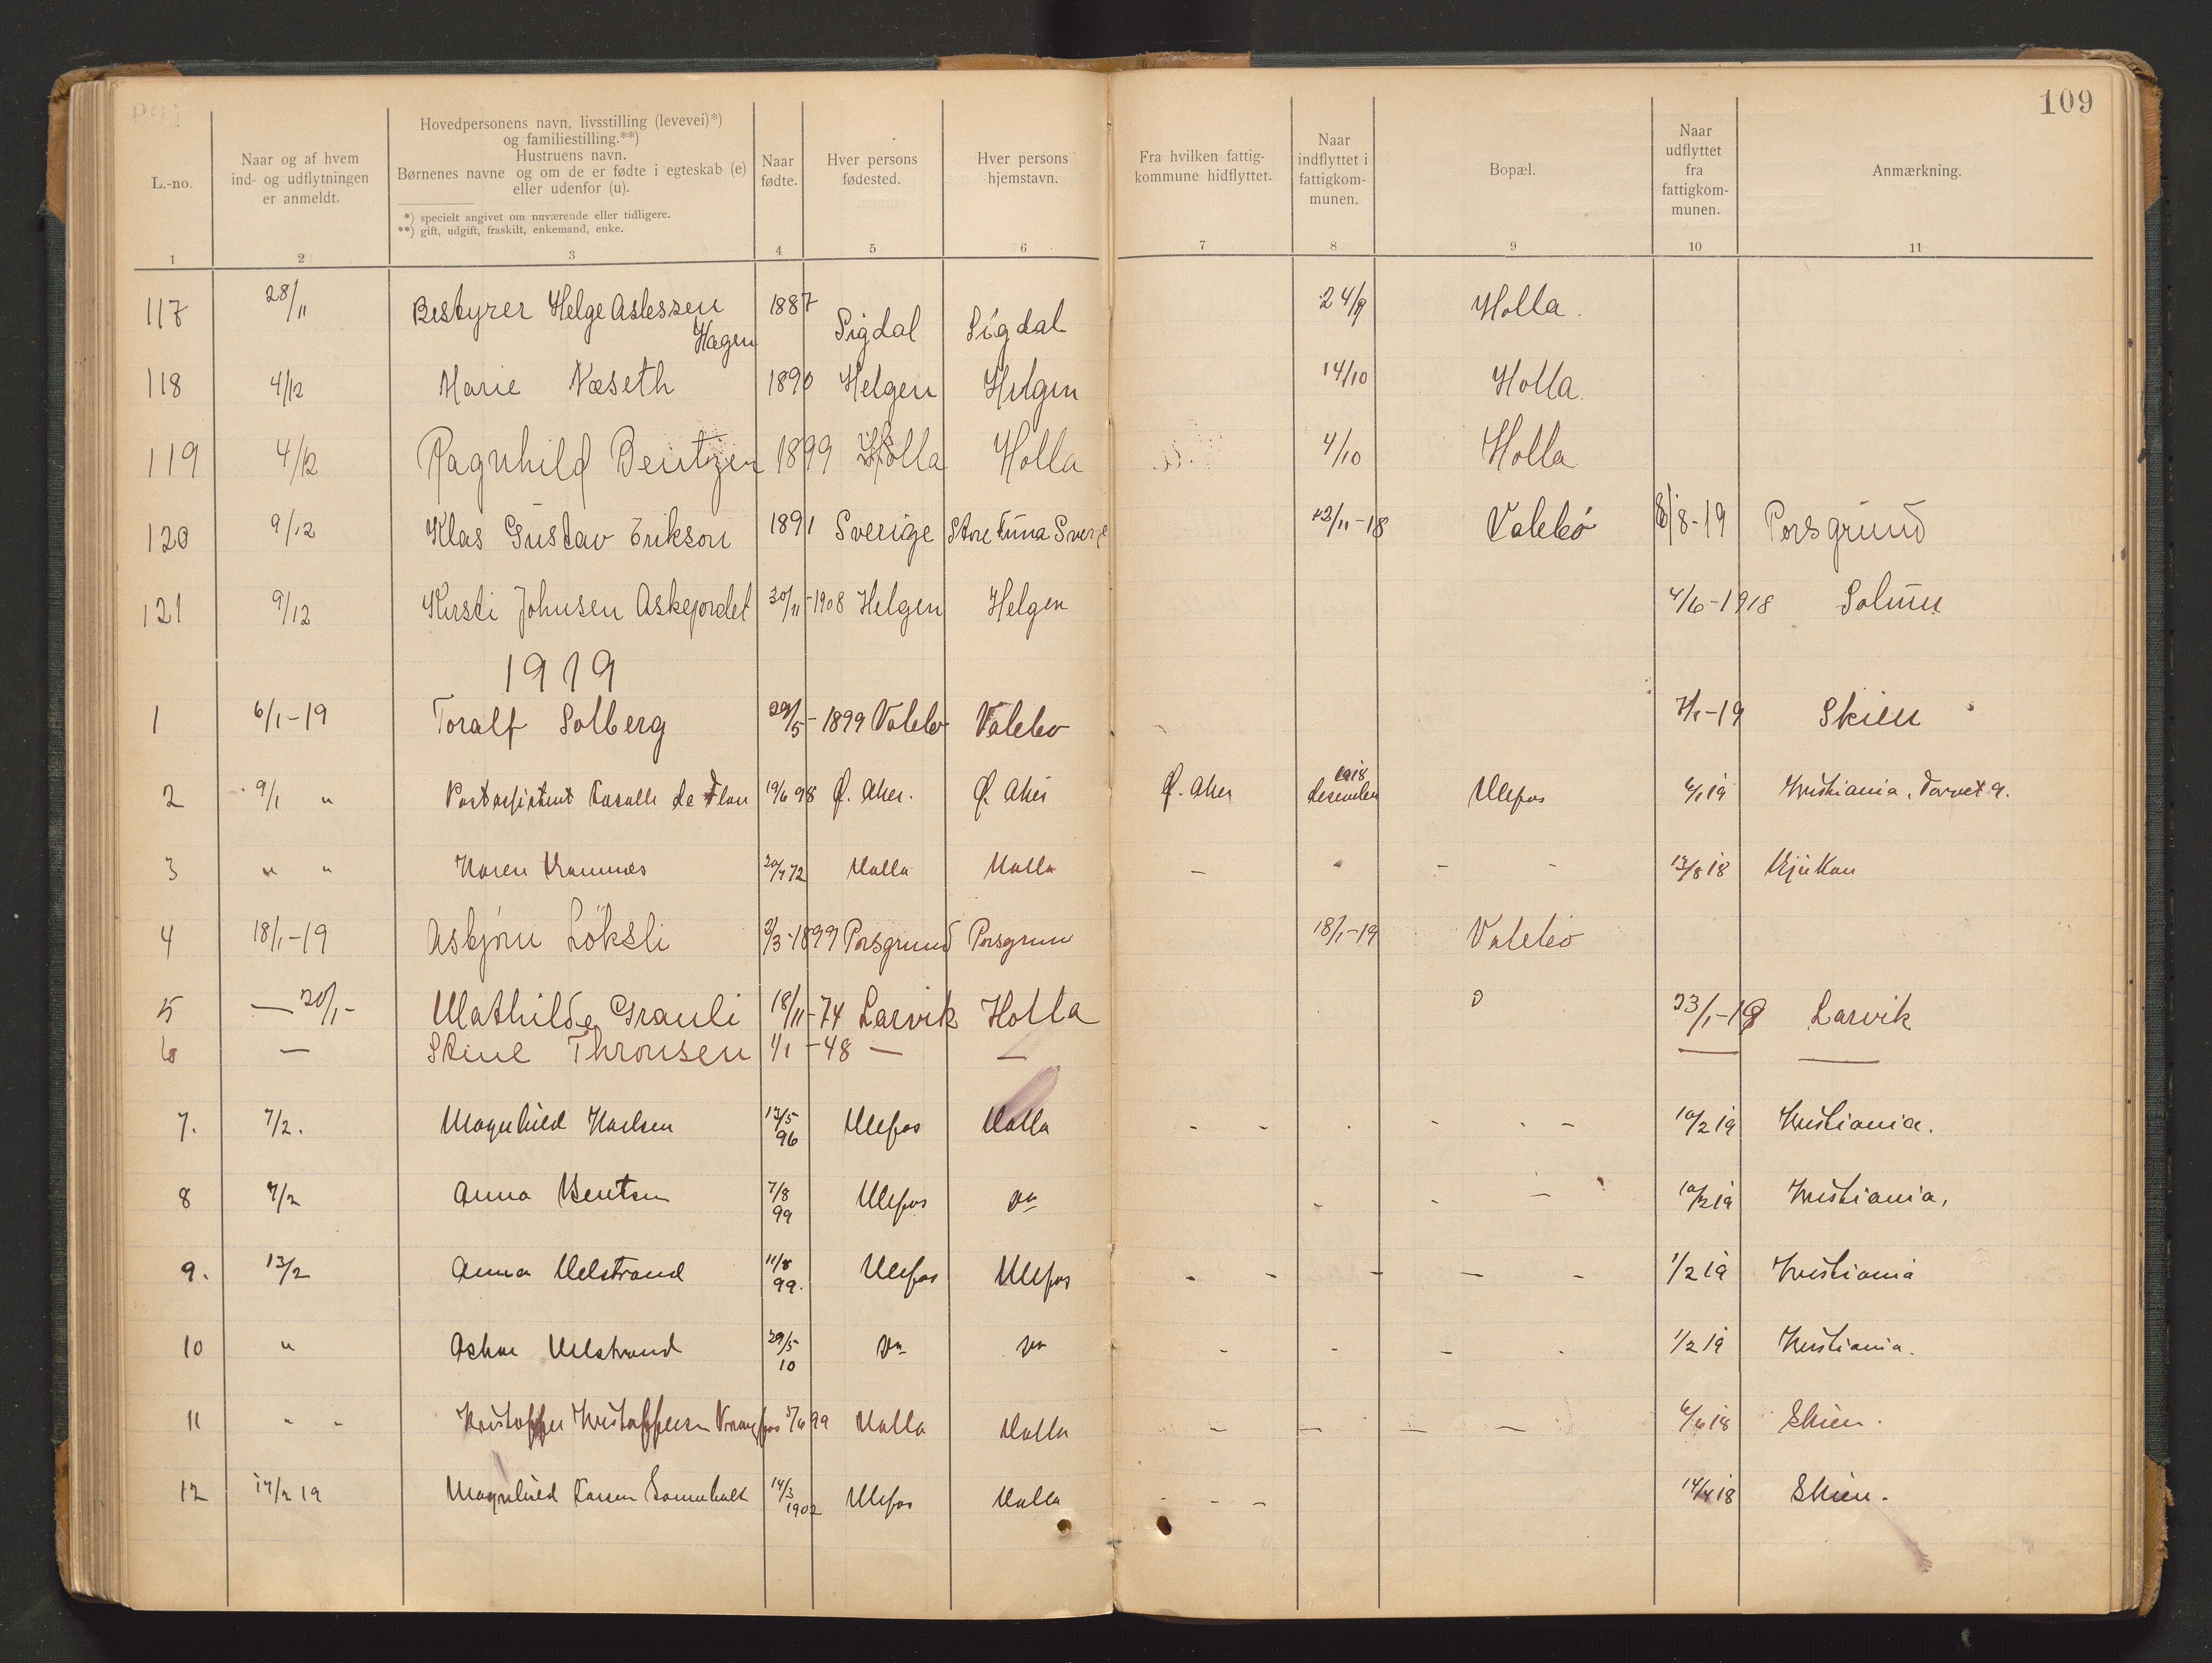 109
L.-no.
Naar og af hvem ind- og udflytningen er anmeldt.
Hovedpersonens navn, livsstilling (levevei)*) og familiestilling.**)
Hustruens navn.
Børnenes navne og om de er fødte i egteskab (e) eller udenfor (u).
*) specielt angivet om nuværende eller tidligere.
**) gift, udgift, fraskilt, enkemand, enke.
Naar fødte.
Hver persons fødested.
Hver persons hjemstavn.
Fra hvilken fattigkommune hidflyttet.
Naar indflyttet i fattigkommunen.
Bopæl.
Naar udflyttet fra fattigkommunen.
Anmærkning.
1 2 3 4 5 6 7 8 9 10 11
117 28/11 Bestyrer Helge Aslessen Hagen 1887 Sigdal Sigdal 24/9 Holla.
118 4/12 Marie Næseth 1890 Helgen Helgen 14/10 Holla.
119 4/12 Ragnhild Bentzen 1899 Holla Holla 4/10 Holla
120 9/12 Klas Gustav Erikson 1891 Sverige Store Tuna Sverge 12/11-18 Valebö 8/8-19 Porsgrund
121 9/12 Kirsti Johnsen Askejordet 30/11-1908 Helgen Helgen 4/6-1918 Solum
1919
1 6/1-19 Toralf Solberg 29/5-1899 Valebo Valebo 7/1-19 Skien
2 9/1 " Postassistent de 19/6 98 Ø. Aker. Ø. Aker Ø. Aker 1918 desember Ulefos 6/1 19 Kristiania, Torvet 9.
3 " " Karen 20/7 72 Holla Holla - - - 13/8 18 Rjukan
4 18/1-19 Asbjørn Löksli 3/3-1899 Porsgrund Porsgrun 18/1-19 Valebö
5 — 20/1- Mathilde Grauli 18/11-74 Larvik Holla 23/1-19 Larvik
6 — Stine Thronsen 1/1-48 — — — —
7. 7/2. Magnhild Karlsen 13/5 96 Ulefos Holla - - - - - - 10/2 19 Kristiania.
8 7/2 Anna Bentsen 7/8 99 Ulefos do - - - 10/2 19 Kristiania,
9. 13/2 Anna Ulstrand 11/8 99. Ulefos Ulefos - - - - - 1/2 19 Kristiania
10 " Ulstrand 29/5 10 do do - - - - 1/2 19 Kristiania.
11 " " Kristoffer Kristoffersen Vrangfos 5/6 99 Holla Holla - - - - 6/6 18 Skien.
12 14/2 19 Magnhild 14/3 1902 Ulefos Holla - - - 14/4 18 Skien.